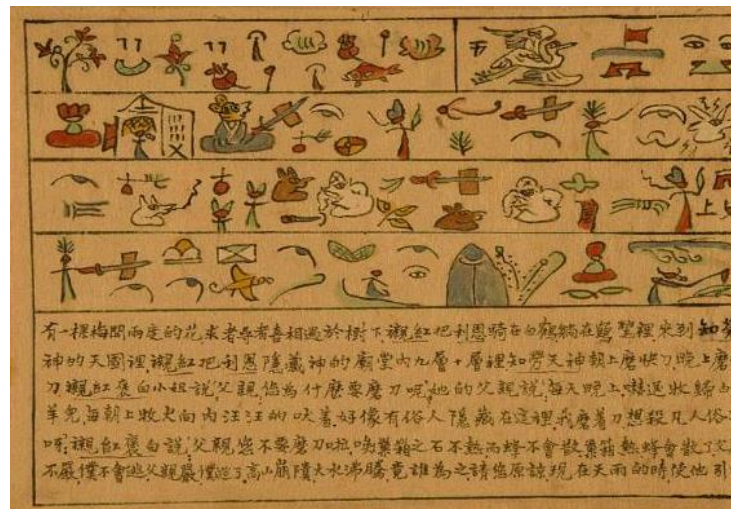 有一棵梅開兩度的花求者尋者喜相遇於樹下襯紅把利恩騎在白鶴躺在鶴翅裡來到知勞
神的天國裡襯紅把利恩隱藏神的廟堂內九層十層裡知勞天神朝上磨快刀晚上磨
刀襯紅褒白小姐說父親您為什麼要磨刀呢她的父親說每天晚上嚇過牧歸山
羊兒每朝上牧犬向內汪汪的吠着好像有俗人隱藏在這裡我磨着刀想殺凡人俗
呀襯紅褒白說父親您不要磨刀啦喲巢箱之石不熱而蜂不會散巢箱熱蜂會散了父
不嚴僕不會逃父親嚴僕逃了高山崩隤大水沸騰竟誰為之請您原諒現在天雨的時使他引